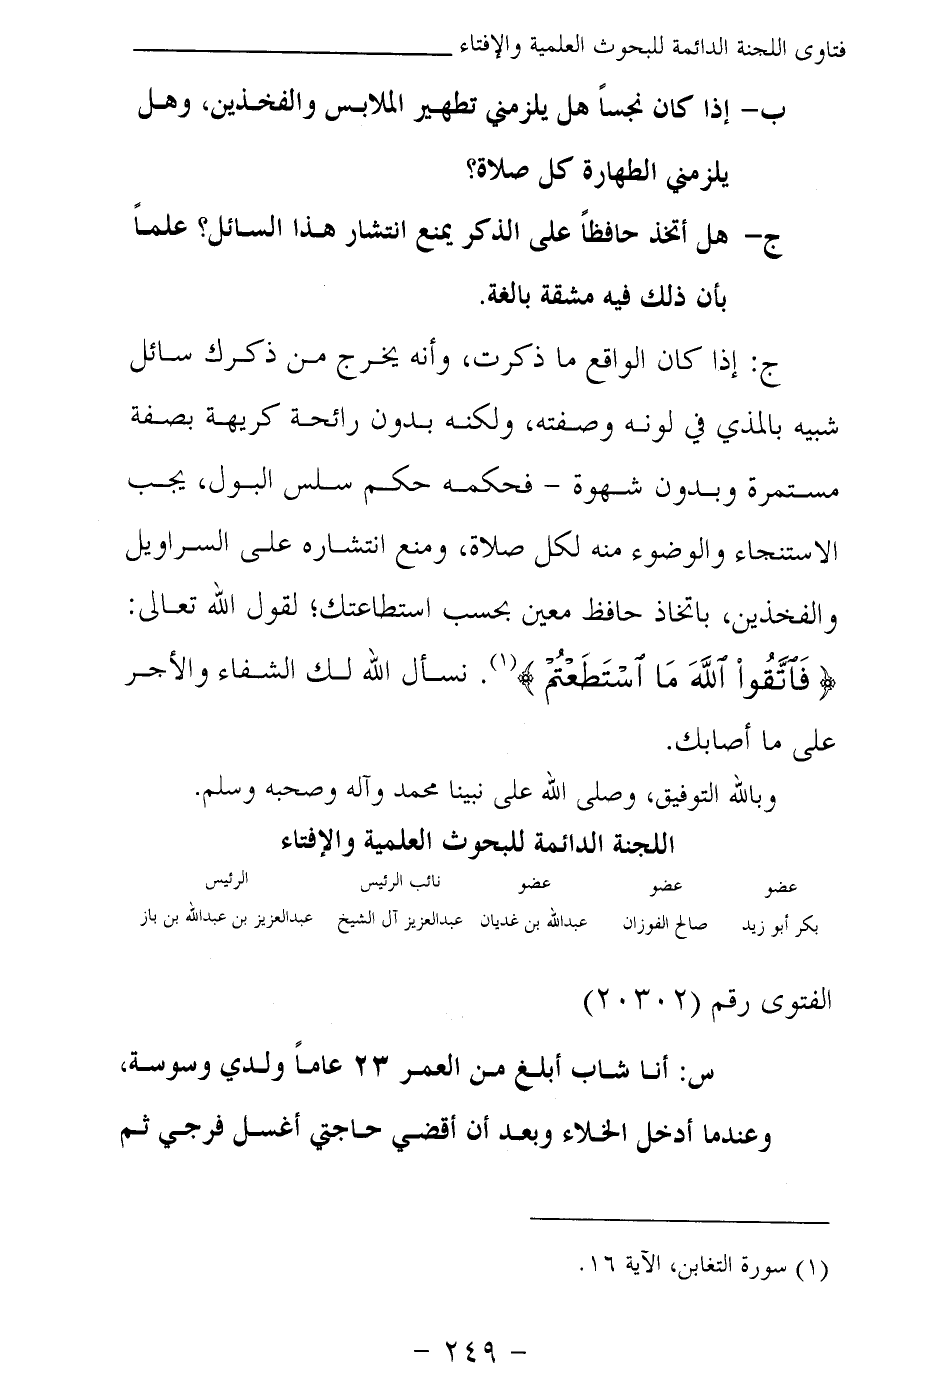 فتاوى اللجنة الدائمة للبحوث العلمية والإفتاء
ب- إذا كان نجساً هل يلزمني تطهير الملابس والفخذين، وهل
يلزمني الطهارة كل صلاة؟
ج- هل أتخذ حافظاً على الذكر يمنع انتشار هذا السائل؟ علماً
بأن ذلك فيه مشقة بالغة.
ج: إذا كان الواقع ما ذكرت، وأنه يخرج من ذكرك سائل
شبيه بالمذي في لونه وصفته، ولكنه بدون رائحة كريهة بصفة
مستمرة وبدون شهوة - فحكمه حكم سلس البول، يجب
الاستنجاء والوضوء منه لكل صلاة، ومنع انتشاره على السراويل
والفخذين، باتخاذ حافظ معين بحسب استطاعتك؛ لقول الله تعالى:
﴿فَٱتَّقُواْ ٱللَّهَ مَا ٱسْتَطَعْتُمْ﴾(١). نسأل الله لك الشفاء والأجر
على ما أصابك.
وبالله التوفيق، وصلى الله على نبينا محمد وآله وصحبه وسلم.
اللجنة الدائمة للبحوث العلمية والإفتاء
عضو عضو عضو نائب الرئيس الرئيس
بكر أبو زيد صالح الفوزان عبدالله بن غديان عبدالعزيز آل الشيخ عبدالعزيز بن عبدالله بن باز
الفتوى رقم (٢٠٣٠٢)
س: أنا شاب أبلغ من العمر ٢٣ عاماً ولدي وسوسة،
وعندما أدخل الخلاء وبعد أن أقضي حاجتي أغسل فرجي ثم
(١) سورة التغابن، الآية ١٦.
- ٢٤٩ -